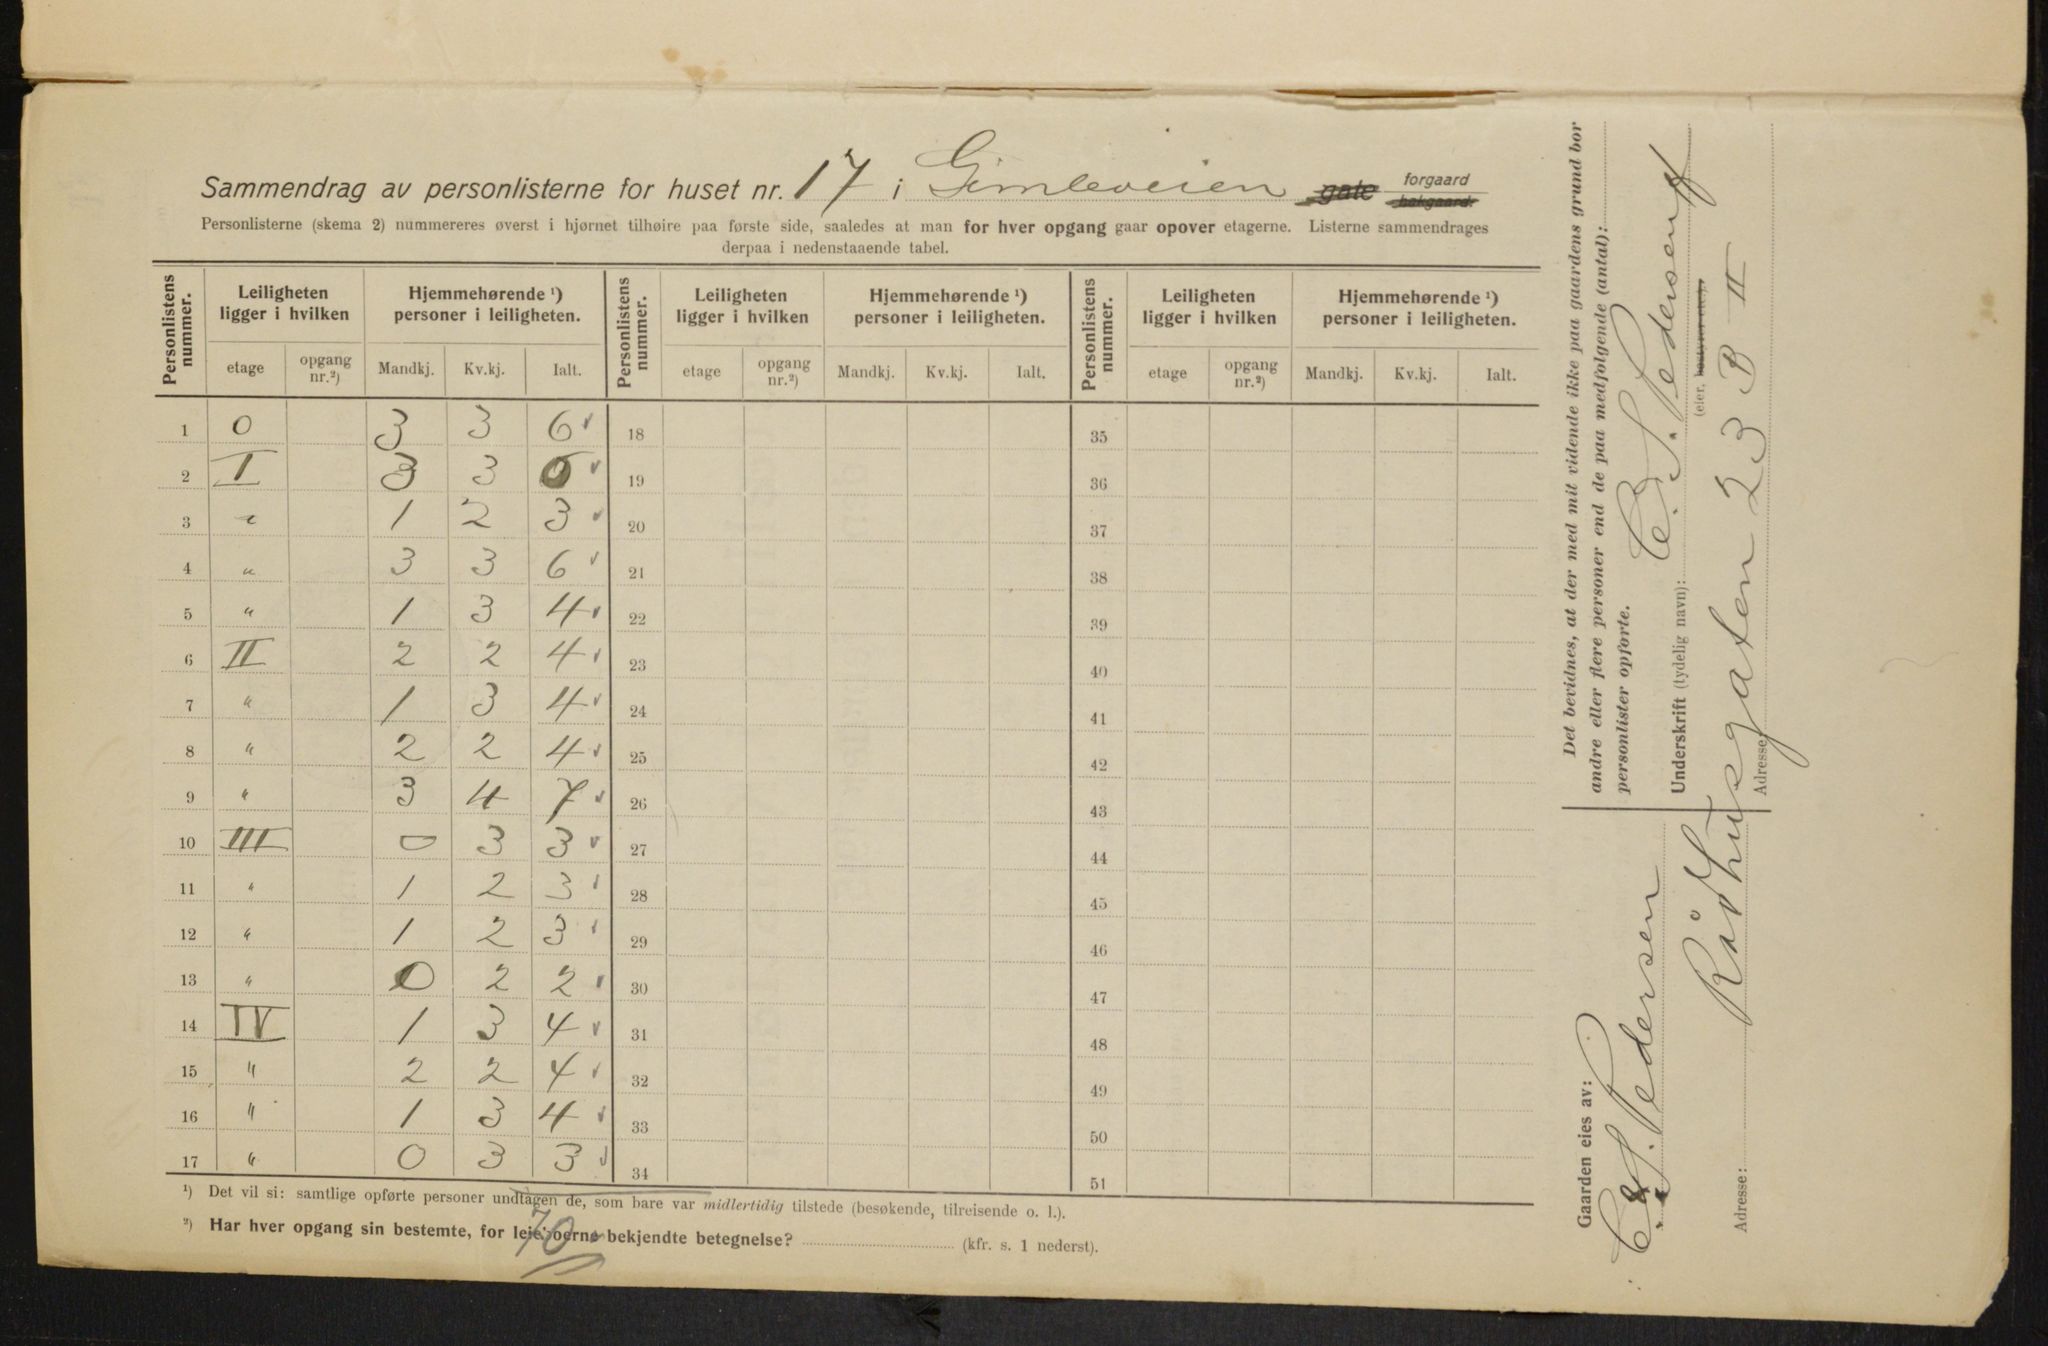 Sammendrag av personlisterne for huset nr. 17 i Gimleveien gate forgaard bakgaard.
Personlisterne (skema 2) nummereres øverst i hjørnet tilhøire paa første side, saaledes at man for hver opgang gaar opover etagerne. Listerne sammendrages
derpaa i nedenstaaende tabel.
Personlistens nummer. Leiligheten ligger i hvilken Hjemmehørende ¹) personer i leiligheten. Personlistens nummer. Leiligheten ligger i hvilken Hjemmehørende ¹) personer i leiligheten. Personlistens nummer. Leiligheten ligger i hvilken Hjemmehørende ¹) personer i leiligheten.
etage opgang nr.²) Mandkj. Kv.kj. Ialt. etage opgang nr.²) Mandkj. Kv.kj. Ialt. etage opgang nr.²) Mandkj. Kv.kj. Ialt.
1 0 3 3 6 18 35
2 I 3 3 6 19 36
3 " 1 2 3 20 37
4 " 3 3 6 21 38
5 " 1 3 4 22 39
6 II 2 2 4 23 40
7 " 1 3 4 24 41
8 " 2 2 4 25 42
9 " 3 4 7 26 43
10 III 0 3 3 27 44
11 " 1 2 3 28 45
12 " 1 2 3 29 46
13 " 0 2 2 30 47
14 IV 1 3 4 31 48
15 " 2 2 4 32 49
16 " 1 3 4 33 50
17 " 0 3 3 34 51
¹) Det vil si: samtlige opførte personer undtagen de, som bare var midlertidig tilstede (besøkende, tilreisende o. l.).
²) Har hver opgang sin bestemte, for leieboerne bekjendte betegnelse? (kfr. s. 1 nederst).
70
Det bevidnes, at der med mit vidende ikke paa gaardens grund bor
andre eller flere personer end de paa medfølgende (antal):
personlister opførte.
Underskrift (tydelig navn): C. S. Pedersen
(eier, bestyrer etc.).
Adresse: Rådhusgaten 23 B II
Gaarden eies av:
C. S. Pedersen
Adresse: